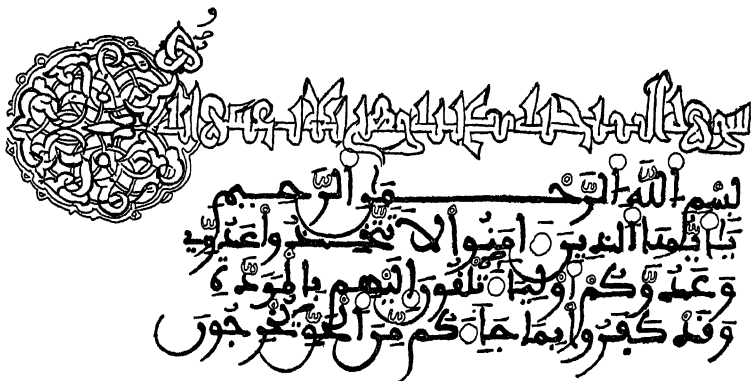 سورة
بِسْمِ اللَّهِ الرَّحْمَنِ الرَّحِيمِ
يَا أَيُّهَا الذِينَ ءَامَنُوا لَا تَتَّخِذُوا عَدُوِّي
وَعَدُوَّكُمْ أَوْلِيَاءَ تُلْقُونَ إِلَيْهِم بِالْمَوَدَّةِ
وَقَدْ كَفَرُوا بِمَا جَاءَكُم مِّنَ الْحَقِّ يُخْرِجُونَ